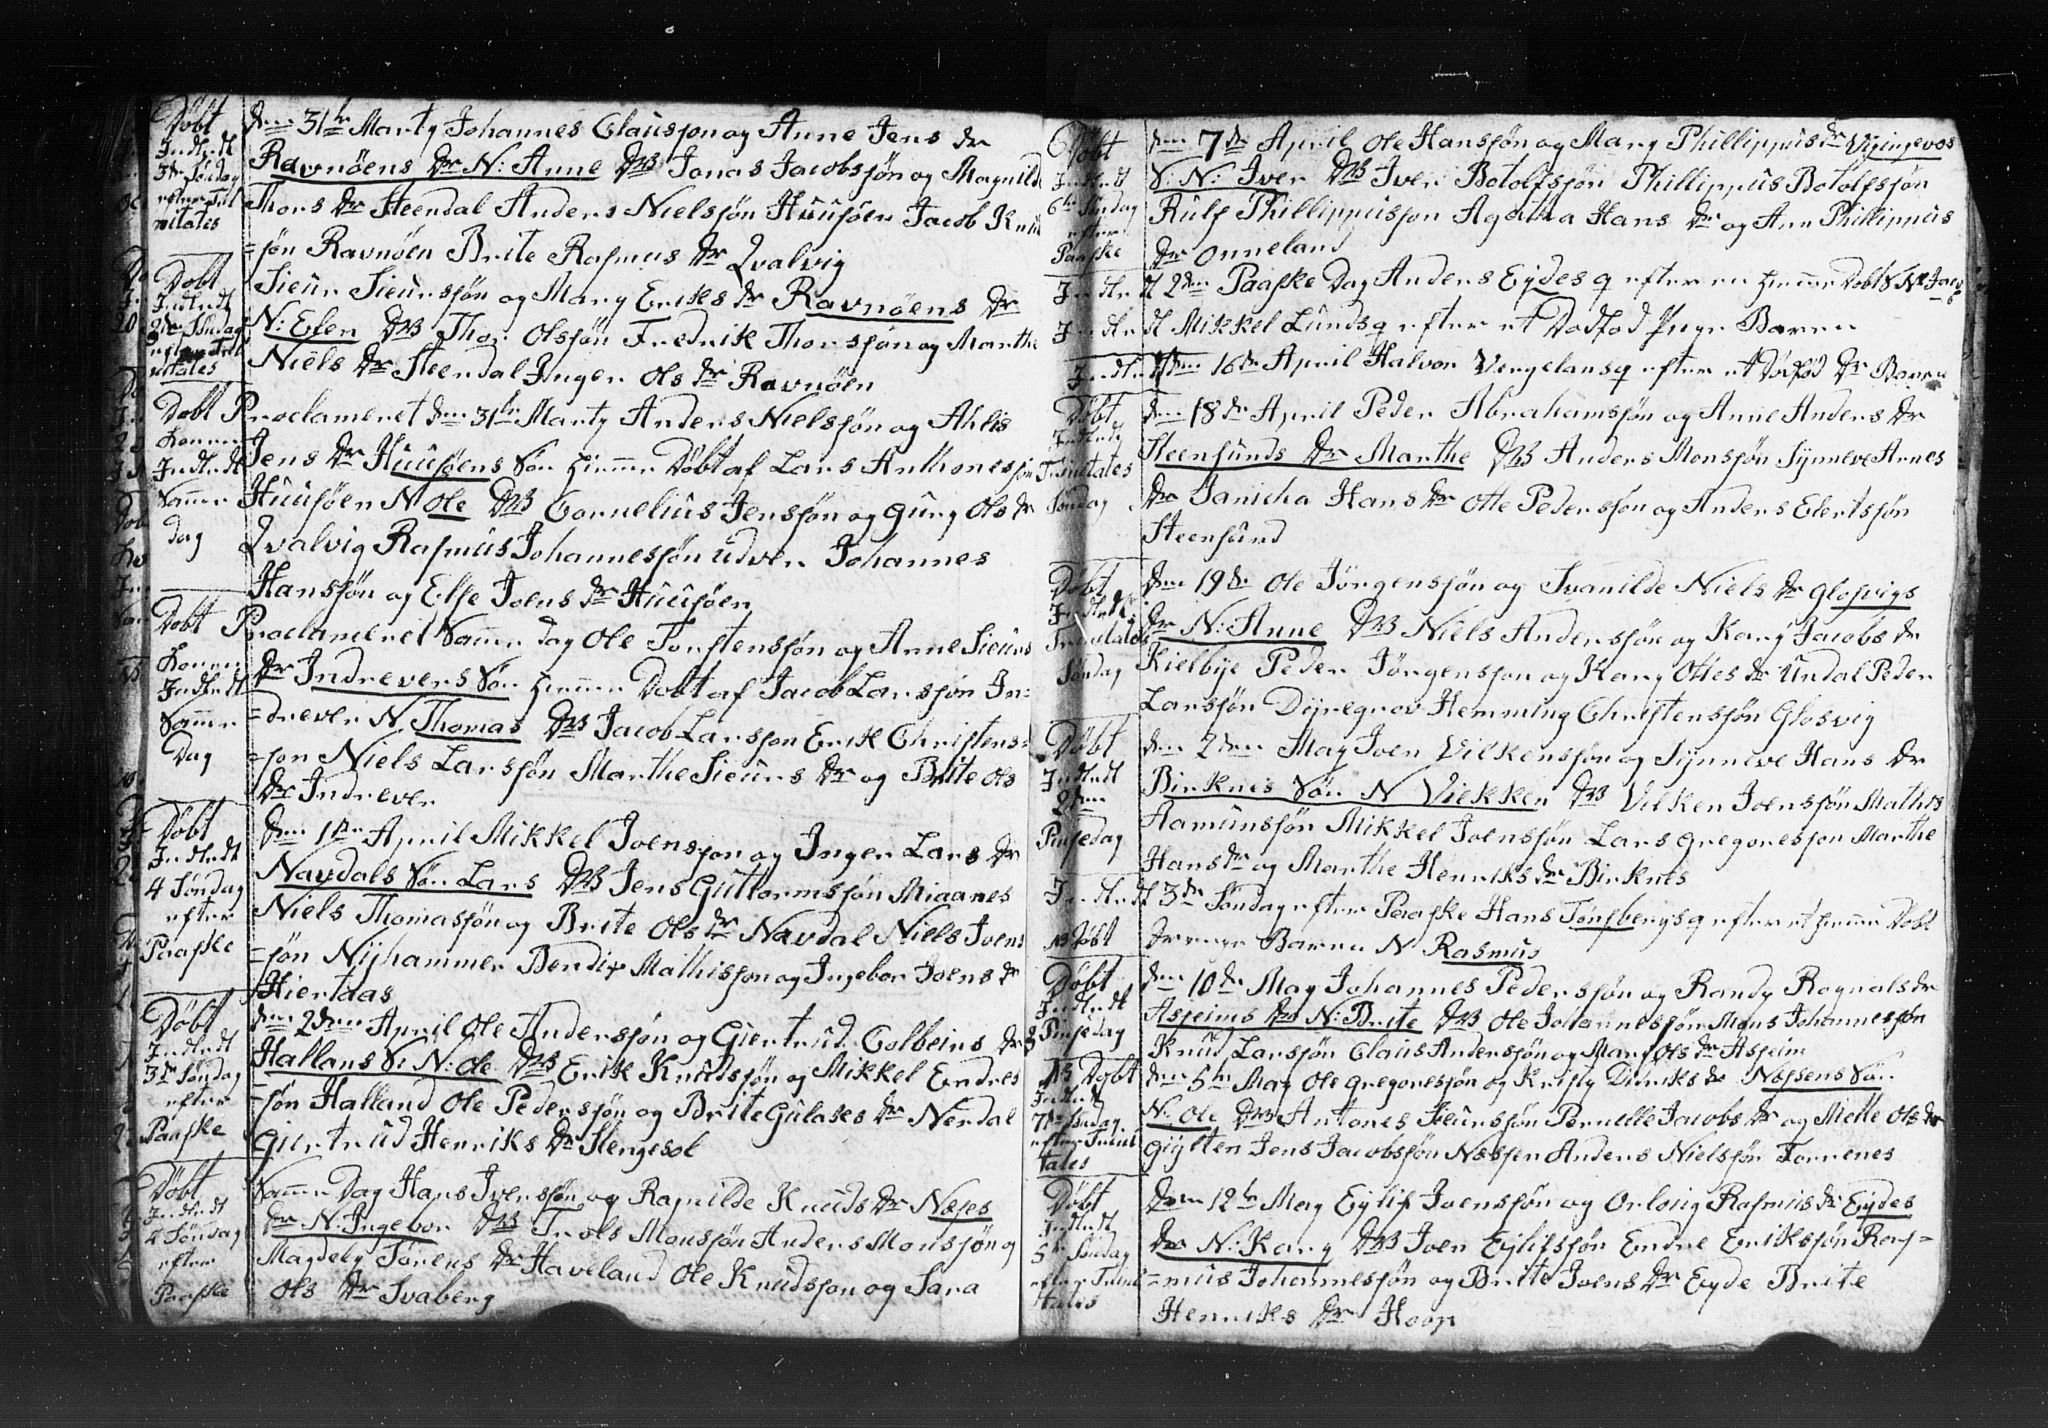 Døbt
Indledt
3die Søndag
efter Tri
nitates
den 31te Marty Johannes Clausjon og Anne Jens dr
Ravnøens dr N: Anne Jonas Jacobsjøn og Magnilde
Thors dr Steendal Anders Nielsjøn Huusøen Jacob Knud
=sjøn Ravnøen Brite Rasmus dr Qvalvig
Døbt
Indledt
2de Søndag
efter Tri
nitates
Sieur Sieursjøn og Mary Eriks dr Ravnøens dr
N: Elen Thor Olsjøn Fredrik Thorsjøn og Marthe
Niels dr Steendal Inger Ols dr Ravnøen
Døbt
Indledt
Samme
dag
Proclameret den 31te Marty Anders Nielssjøn og Ahlis
Jens dr Huusøens Søn hiemme Døbt af Lars Anthonesjøn
Huusøen N Ole Cornelius Jensjøn og Gury Ols dr
Qvalvig Rasmus Johannesjøn udver Johannes
Hansjøn og Else Joens dr Huusøen
Døbt
Indledt
Samme
Dag
Proclameret Samme dag Ole Torstensjøn og Anne Sieurs
dr Indrevers Søn hiemme Døbt af Jacob Larsjøn In=
=drever N. Thomas Jacob Larsjon Erik Christens=
=jon Niels Larsjøn Marthe Sieurs dr og Brite Ols
dr Indrever
Døbt
Indledt
4 Søndag
efter
Paaske
den 1ste April Mikkel Joensjon og Inger Lars dr
Navdals Søn Lars Jens Guttormsjøn Miaanes
Niels Thomasjøn og Brite Ols dr Navdal Niels Joens
=jøn Nyhammer Bendix Mathisjon og Ingebor Joens dr
Hiertaas
Døbt
Indledt
3die Søndag
efter
Paaske
den 2den April Ole Andersjøn og Giertrud Colbeins dr
Hallans S: N: Ole Erik Knudsjøn og Mikkel Endres
=jøn Halland Ole Pedersjøn og Brite Gulakes dr Nerdal
Giertrud Henriks dr Stengesol
Døbt
Indledt
4 Søndag
efter
Paaske
Samme Dag Hans Iversjøn og Ragnilde Knuds dr Næses
dr N. Ingebor Trols Monsjøn Anders Monsjøn og
Magdely Sørens dr Haveland Ole Knudsjon og Sara
Ols dr Svaberg
Døbt
Indledt
6te Søndag
efter
Paaske
den 7de April Ole Hansjøn og Mary Phillippus dr
S: N: Iver Iver Botolfsjøn Phillippus Botolfsjøn
Rulf Phillippusjon Agatha Hans dr og Ane Phillippus
dr Onneland
Indledt 2den Paaske Dag Anders Eydes q efter en hiemme Døbt S N: Jacob
Indledt Mikkel Lunds q efter et Dødfød Pige Barn
Indledt den 16de April Halvor Vergelans q efter et Dødfød dr Barn
Døbt
Indledt
Trinitates
Søndag
den 18de April Peder Abrahamsjøn og Anne Anders dr
Steensunds dr Marthe Anders Monsjøn Synneve Arnes
dr Janicha Hans dr Otte Pedersjøn og Anders Elertsjøn
Steensund
Døbt
Indledt
Trinitatis
Søndag
den 19de Ole Jørgensjøn og Svanilde Niels dr Glosvigs
dr N: Anne Niels Andersjøn og Kary Jacobs dr
Kielbye Peder Jørgensjon og Kary Ottes dr Undal Peder
Larsjøn Dyregrov Hemming Christensjøn Glosvig
Døbt
Indledt
2den
Pinsedag
den 2den May Joen Vilkensjon og Synneve Hans dr
Birknes Søn N Viekken Vilken Joensjøn Mathis
Aamunsjøn Mikkel Joensjøn Lars Gregoresjon Marthe
Hans dr og Marthe Henriks dr Birknes
Indledt 3de Søndag efter Paaske Hans Tønsbergs q efter et hiemme Døbt
Drenge Barn N Rasmus
Døbt
Indledt
Pinsedag
den 10de May Johannes Pedersjøn og Randy Rognals dr
Aspeims dr N: Brite Ole Johannesjøn Mons Johannesjøn
Knud Larsjøn Claus Andersjøn og Mary Ols dr Aspeim
NB Døbt
Indledt
7de Søndag
efter Trini
tates
den 5te May Ole Gregoresjøn og Kristy Diriks dr Næssens Søn
N. Ole Antones Sieursjøn Pernelle Jacobs dr og Mette Ols dr
Gylten Jens Jacobsjøn Næssen Anders Nielsjøn Torrenes
Døbt
Indledt
5te Søndag
efter Trini
tatis
den 12te May Eylif Joensjøn og Orlaug Rasmus dr Eydes
dr N: Kary Joen Eylifsjøn Endre Eriksjøn Ras=
=mus Johannesjøn og Brite Joens dr Eyde Brite
Henriks dr Hoop